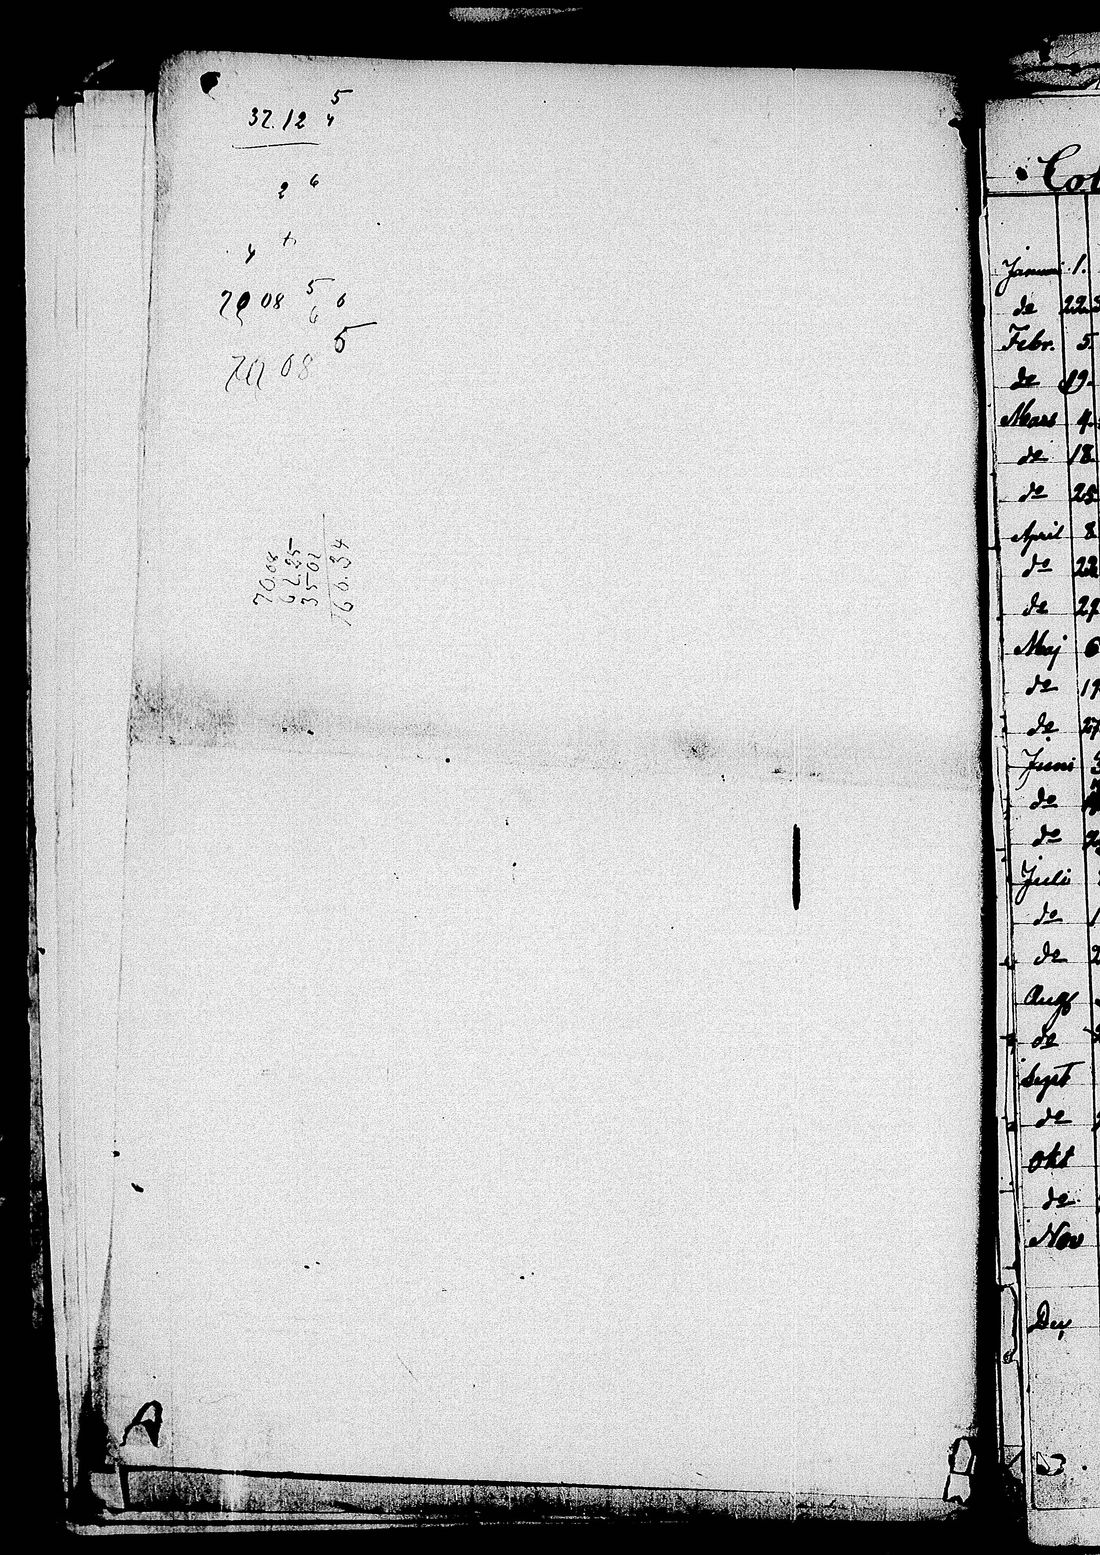 5
32.12 4
2 6
4 +
70 08 5 6
6
5
70 08
70.08
61.25
35 01
166.34
Col
Januari 1.
do 22.
Febr. 5
do 19.
Mars 4.
do 18.
do 25
April 8
do 22
do 27
Maj 6
do 19
do 27
Juni 3
do
do 2
Juli
do 1
do 2
Aug
do 2
Sept
do
Okt
do
Nov